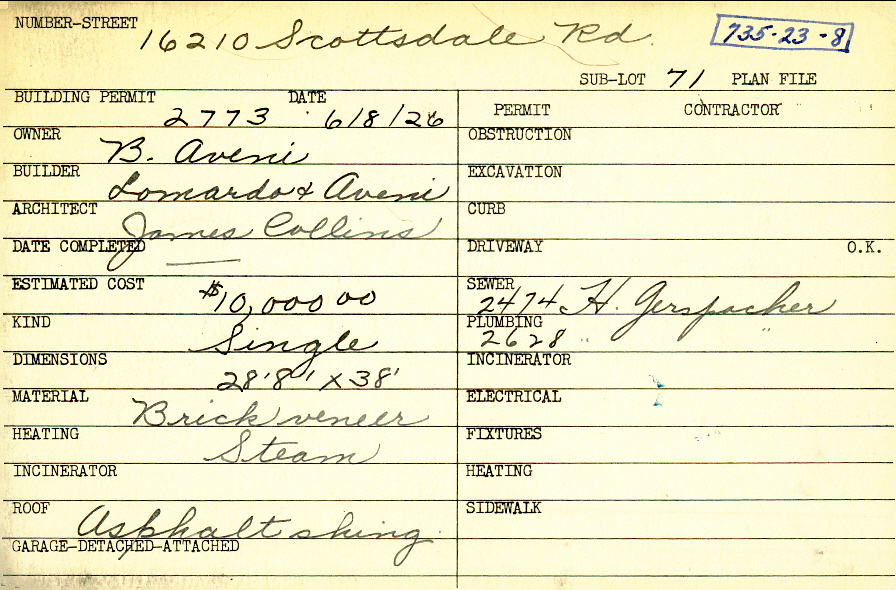 NUMBER-STREET 16210 Scottsdale Rd. 735-23-8
SUB-LOT 71 PLAN FILE
BUILDING PERMIT 2773 DATE 6/8/26
PERMIT CONTRACTOR
OWNER B. Aveni
OBSTRUCTION
BUILDER Lomardo & Aveni
EXCAVATION
ARCHITECT James Collins
CURB
DATE COMPLETED —
DRIVEWAY O.K.
ESTIMATED COST $10,000 00
SEWER 2474 H. Gerspacher
KIND Single
PLUMBING 2628 " "
DIMENSIONS 28'8' x 38'
INCINERATOR
MATERIAL Brick veneer
ELECTRICAL
HEATING Steam
FIXTURES
INCINERATOR
HEATING
ROOF Asphalt shing.
SIDEWALK
GARAGE-DETACHED-ATTACHED